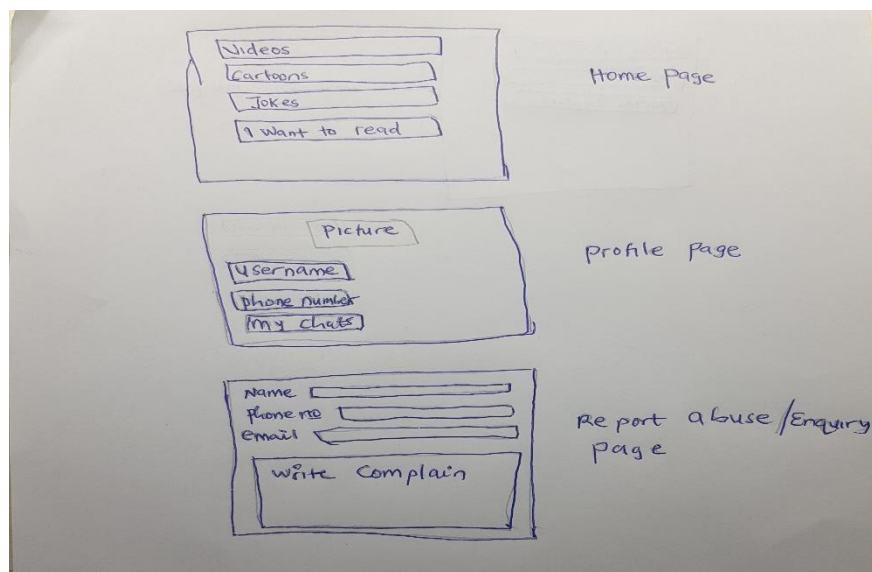 Videos
Cartoons
Jokes
I want to read
Home page
Picture
username
phone number
my chats
profile page
Name
phone no
email
write complain
Report abuse/Enquiry
page